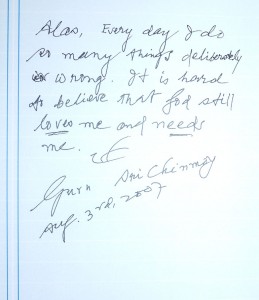 Alas, Every day I do
so many things deliberately
wrong. It is hard
to believe that God still
loves me and needs
me.
Guru Sri Chinmoy
Aug. 3rd, 2007